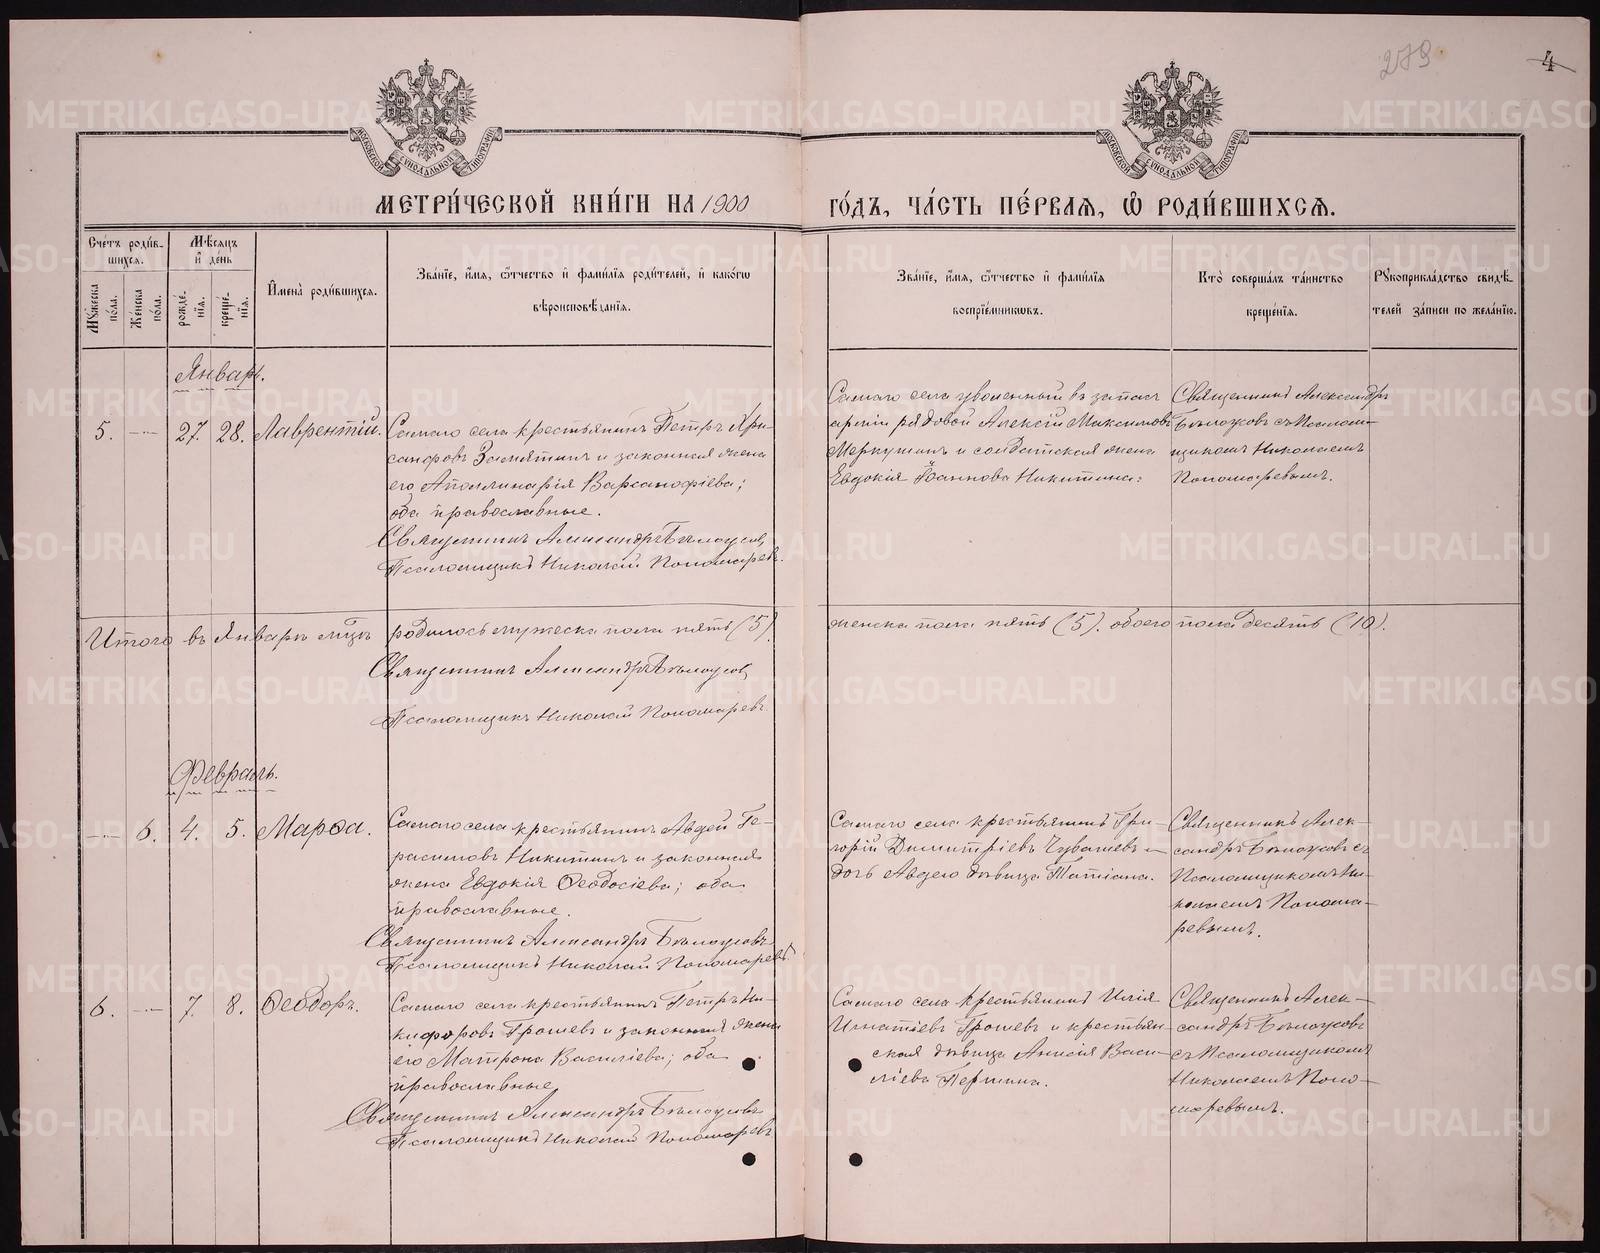 279
4
МОСКОВСКОЙ СѴНОДАЛЬНОЙ ТИПОГРАФІИ
МОСКОВСКОЙ СѴНОДАЛЬНОЙ ТИПОГРАФІИ
МЕТРИ́ЧЕСКОЙ КНИ́ГИ НА 1900
ГО́ДЪ, ЧА́СТЬ ПЕ́РВАЯ, Ѡ҆ РОДИ́ВШИХСЯ.
Сче́тъ роди́в-
шихся.
Мꙋ́жеска
по́ла.
Же́нска
по́ла.
Мѣ́сяцъ
и҆ де́нь
рожде́-
нїя.
креще́-
нїя.
И҆мена̀ роди́вшихся.
Зва́нїе, и҆́мя, ѻ҆́тчество и҆ фами́лїя роди́телей, и҆ како́гѡ
вѣроисповѣ́данїя.
Зва́нїе, и҆́мя, ѻ҆́тчество и҆ фами́лїя
воспрїе́мникѡвъ.
Кто̀ соверша́лъ та́инство
креще́нїя.
Рꙋкоприкла́дство свидѣ́-
телей за́писи по жела́нїю.
Январь.
5. — 27. 28. Лаврентій.
Самаго села крестьянинъ Петръ Хри-
санфовъ Замятинъ и законная жена
его Аполлинарія Варсанофіева;
оба православные.
Священникъ Александръ Бѣлоусовъ
Псаломщикъ Николай Пономаревъ.
Самаго села уволенный въ запасъ
арміи рядовой Алексій Максимовъ
Меркушинъ и солдатская жена
Евдокія Іоаннова Никитина.
Священникъ Александръ
Бѣлоусовъ съ Псалом-
щикомъ Николаемъ
Пономаревымъ.
Итого въ Январѣ м-цѣ родилось мужеска пола пять (5). женска пола пять (5). обоего пола десять (10).
Священникъ Александръ Бѣлоусовъ
Псаломщикъ Николай Пономаревъ
Февраль.
— 6. 4. 5. Марѳа.
Самаго села крестьянинъ Авдей Ге-
расимовъ Никитинъ и законная
жена Евдокія Ѳеодосіева; оба
православные.
Священникъ Александръ Бѣлоусовъ
Псаломщикъ Николай Пономаревъ
Самаго села крестьянинъ Гри-
горій Димитріевъ Чувашевъ и
дочь Авдея дѣвица Татіана.
Священникъ Алек-
сандръ Бѣлоусовъ съ
Псаломщикомъ Ни-
колаемъ Понома-
ревымъ.
6. — 7. 8. Ѳеодоръ.
Самаго села крестьянинъ Петръ Ни-
кифоровъ Грошевъ и законная жена
его Матрона Василіева; оба
православные
Священникъ Александръ Бѣлоусовъ
Псаломщикъ Николай Пономаревъ
Самаго села крестьянинъ Илія
Игнатіевъ Грошевъ и крестьян-
ская дѣвица Анисія Васи-
ліева Першина.
Священникъ Алек-
сандръ Бѣлоусовъ
съ Псаломщикомъ
Николаемъ Поно-
маревымъ.